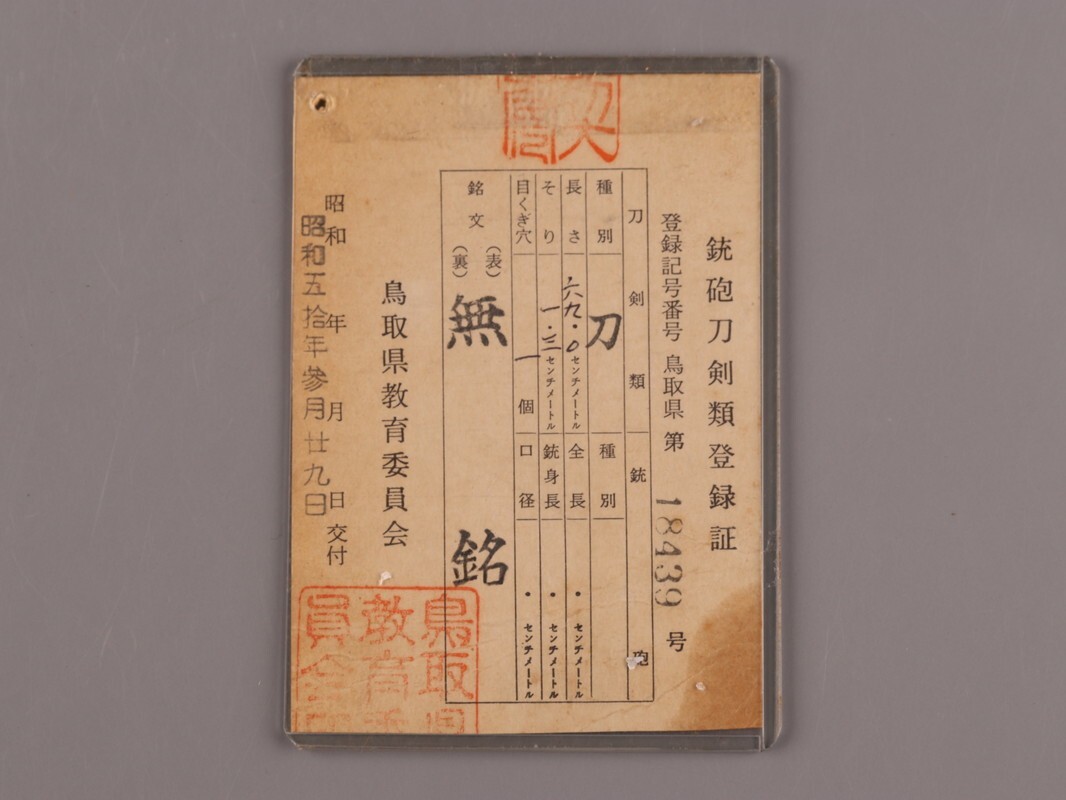 銃砲刀剣類登録証
登録記号番号 鳥取県 第 18439 号
刀剣類 銃砲
種別 刀 種別
長さ 六九・〇 センチメートル 全長 ・ センチメートル
そり 一・三 センチメートル 銃身長 ・ センチメートル
目くぎ穴 一 個 口径 ・ センチメートル
銘文 (表) (裏) 無銘
鳥取県教育委員会
昭和 年 月 日交付
昭和五拾年参月廿九日
鳥取県
教育委
員会